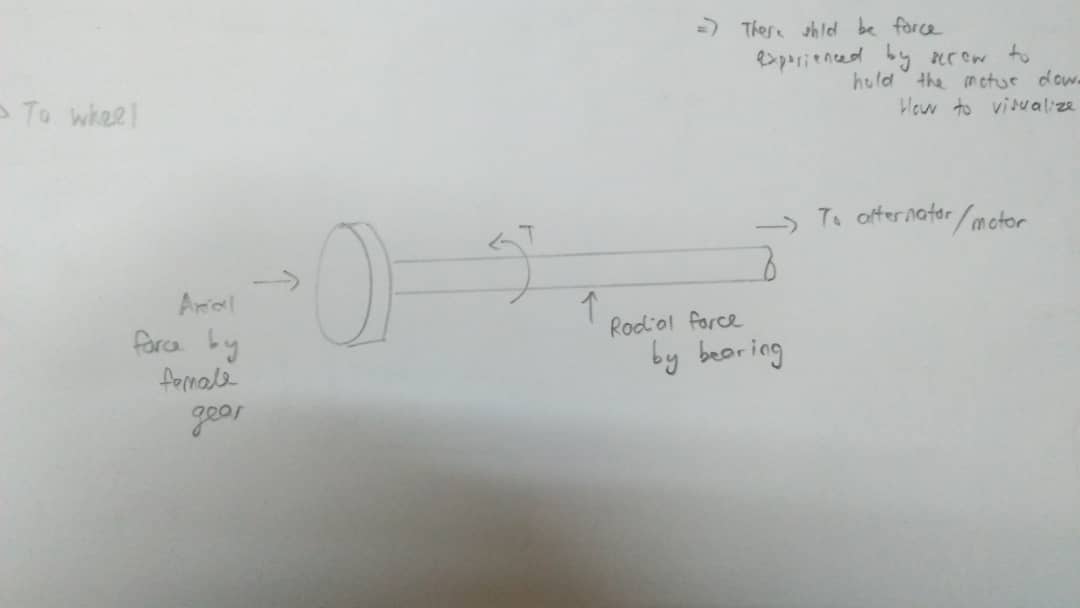 =) There shld be force
experienced by screw to
hold the motor down.
How to visualize
To wheel
T
→ To alternator/motor
Axial
force by
female
gear
Radial force
by bearing